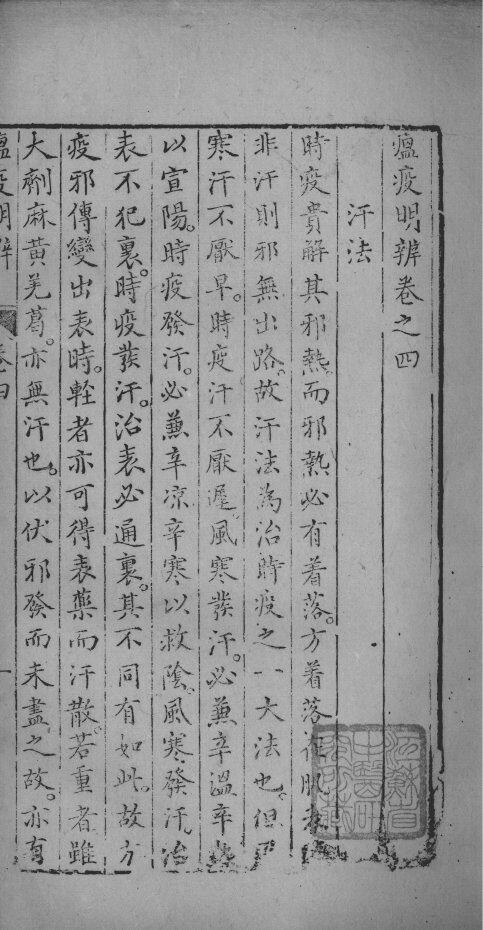 瘟疫明辨卷之四
汗法
時疫貴解其邪熱。而邪熱必有着落。方着落在肌表
非汗則邪無出路。故汗法為治時疫之一大法也。但風
寒汗不厭早。時疫汗不厭遲。風寒發汗。必兼辛溫辛
以宣陽。時疫發汗。必兼辛凉辛寒以救陰。風寒發汗。治
表不犯裏。時疫發汗。治表必通裏。其不同有如此。故方
疫邪傳變出表時。輕者亦可得表藥而汗散。若重者。雖
大劑麻黃羌葛。亦無汗也。以伏邪發而未盡之故。亦有
瘟疫明辨 卷四 一
江蘇省
中醫研
究所藏